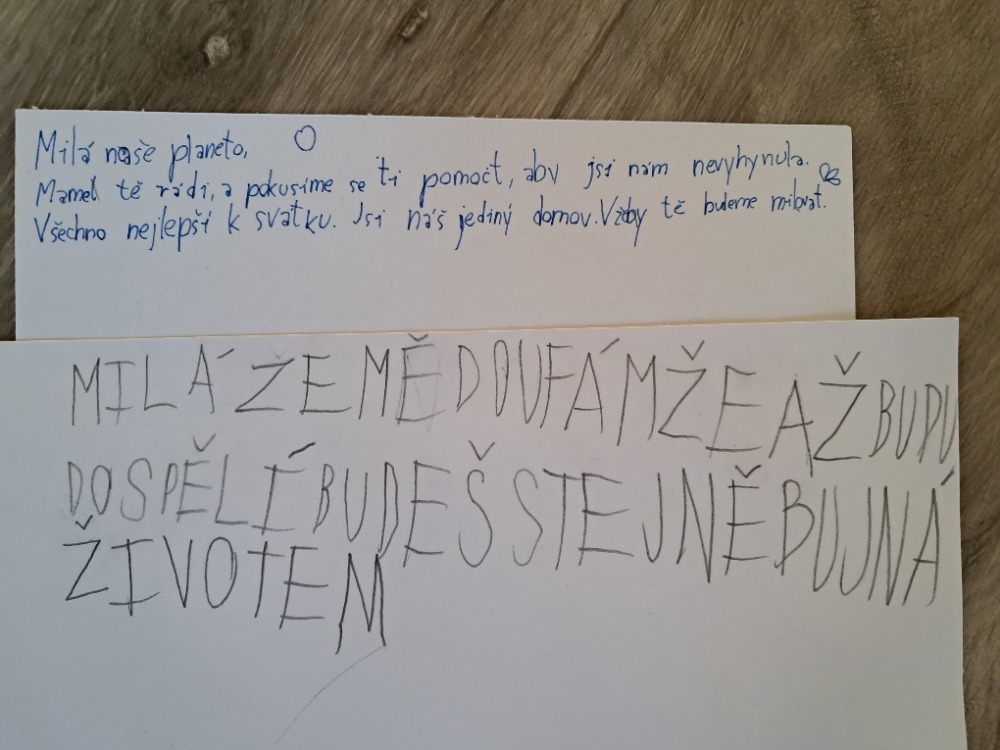 Milá naše planeto,
Mame tě rádi, a pokusíme se ti pomoct, aby jsi nám nevyhynula.
Všechno nejlepší k svátku. Jsi náš jediný domov. Vždy tě budeme milovat.
MILÁ ŽEMĚ DOUFÁM ŽE AŽ BUDU
DOSPĚLÍ BUDEŠ STEJNĚ BUJNÁ
ŽIVOTEM